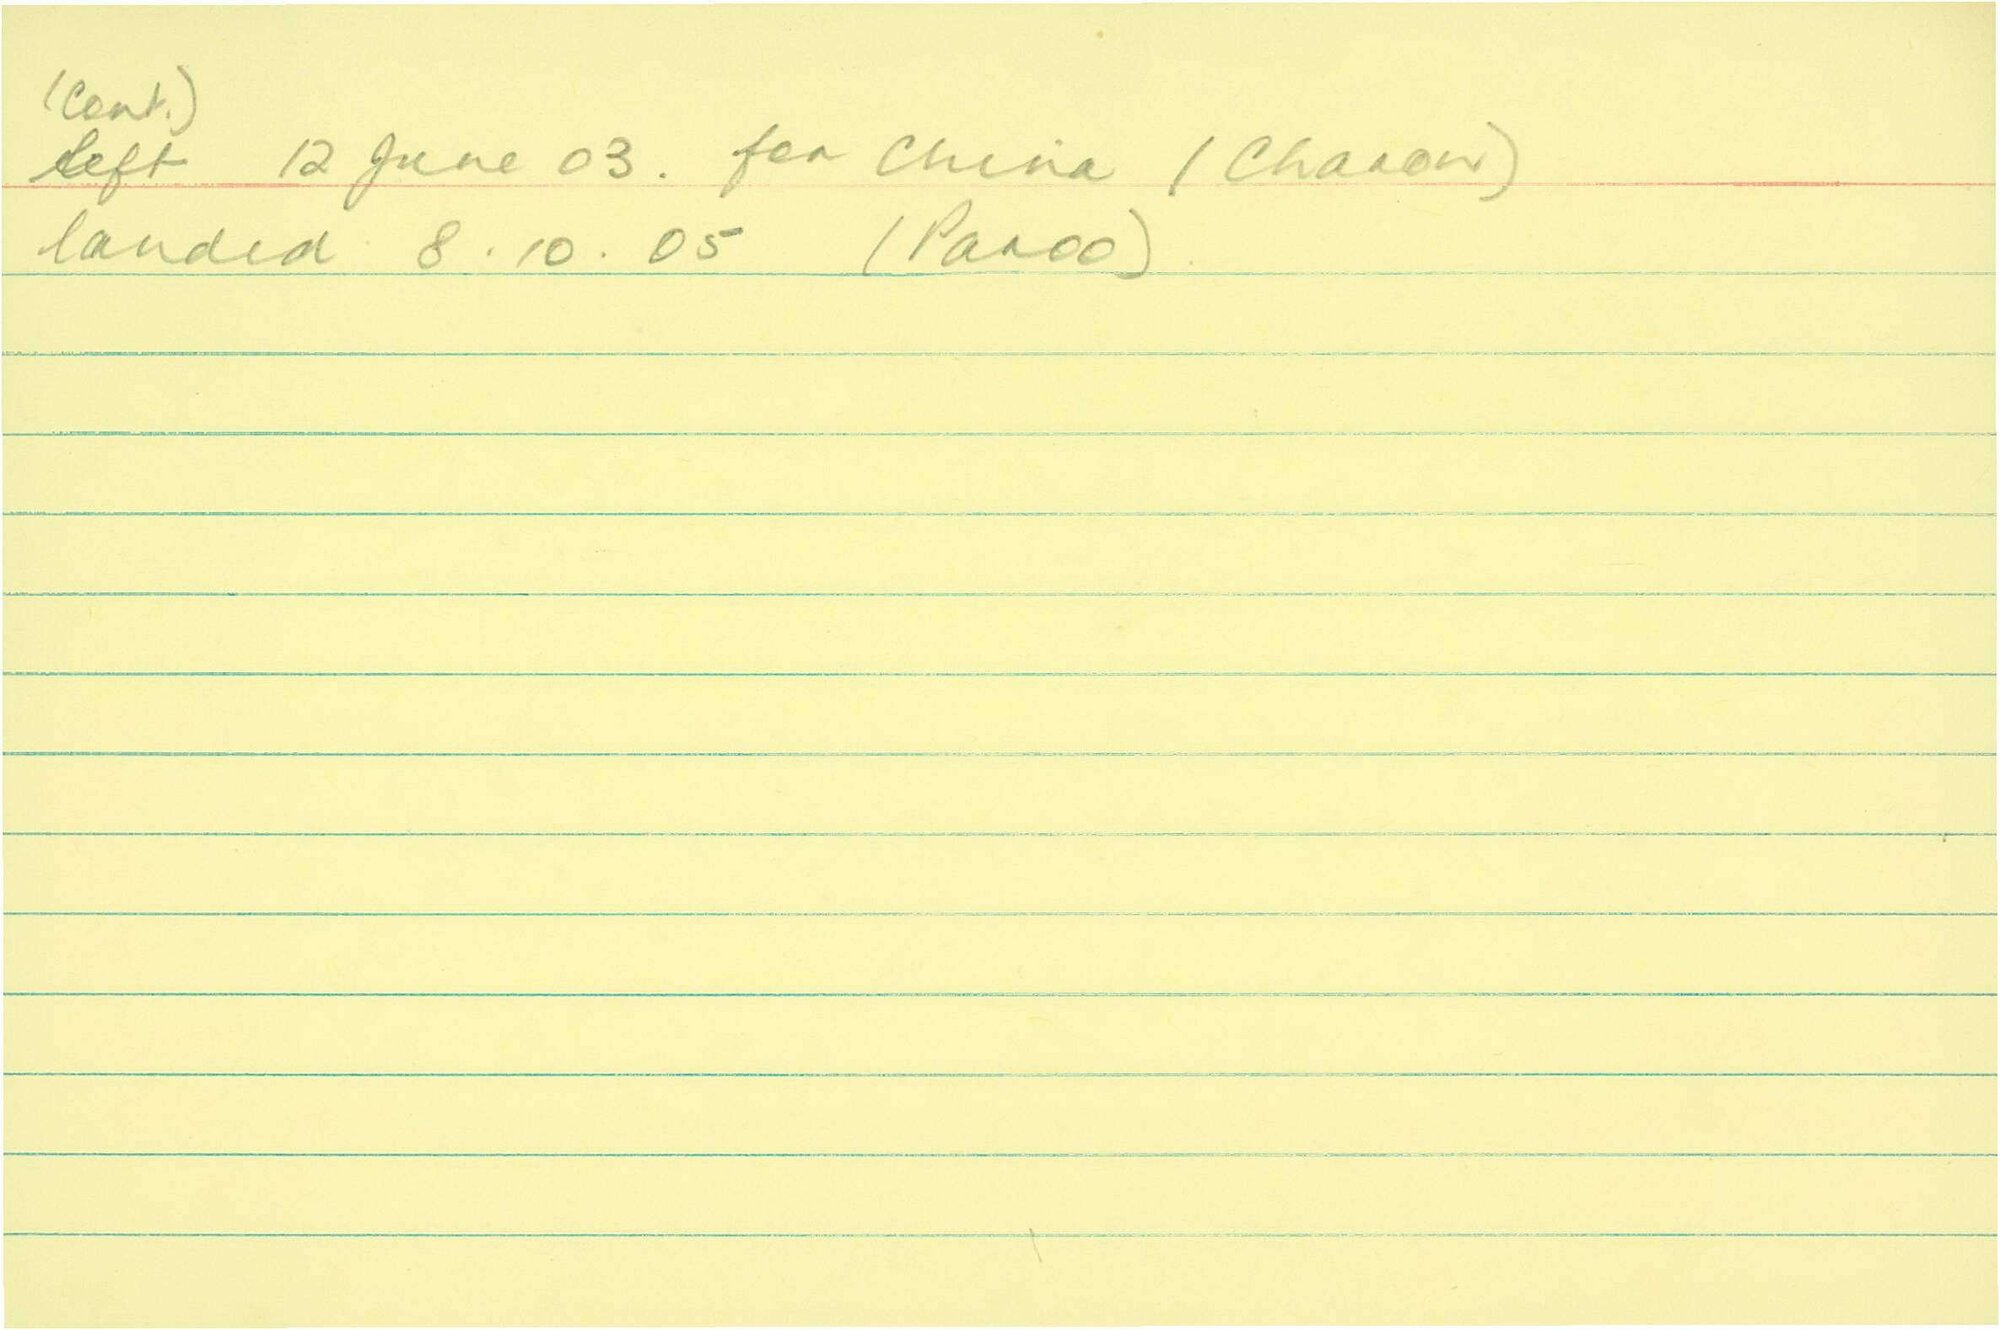 (Cont.)
left 12 June 03. for China (Charon)
landed 8.10.05 (Paroo)